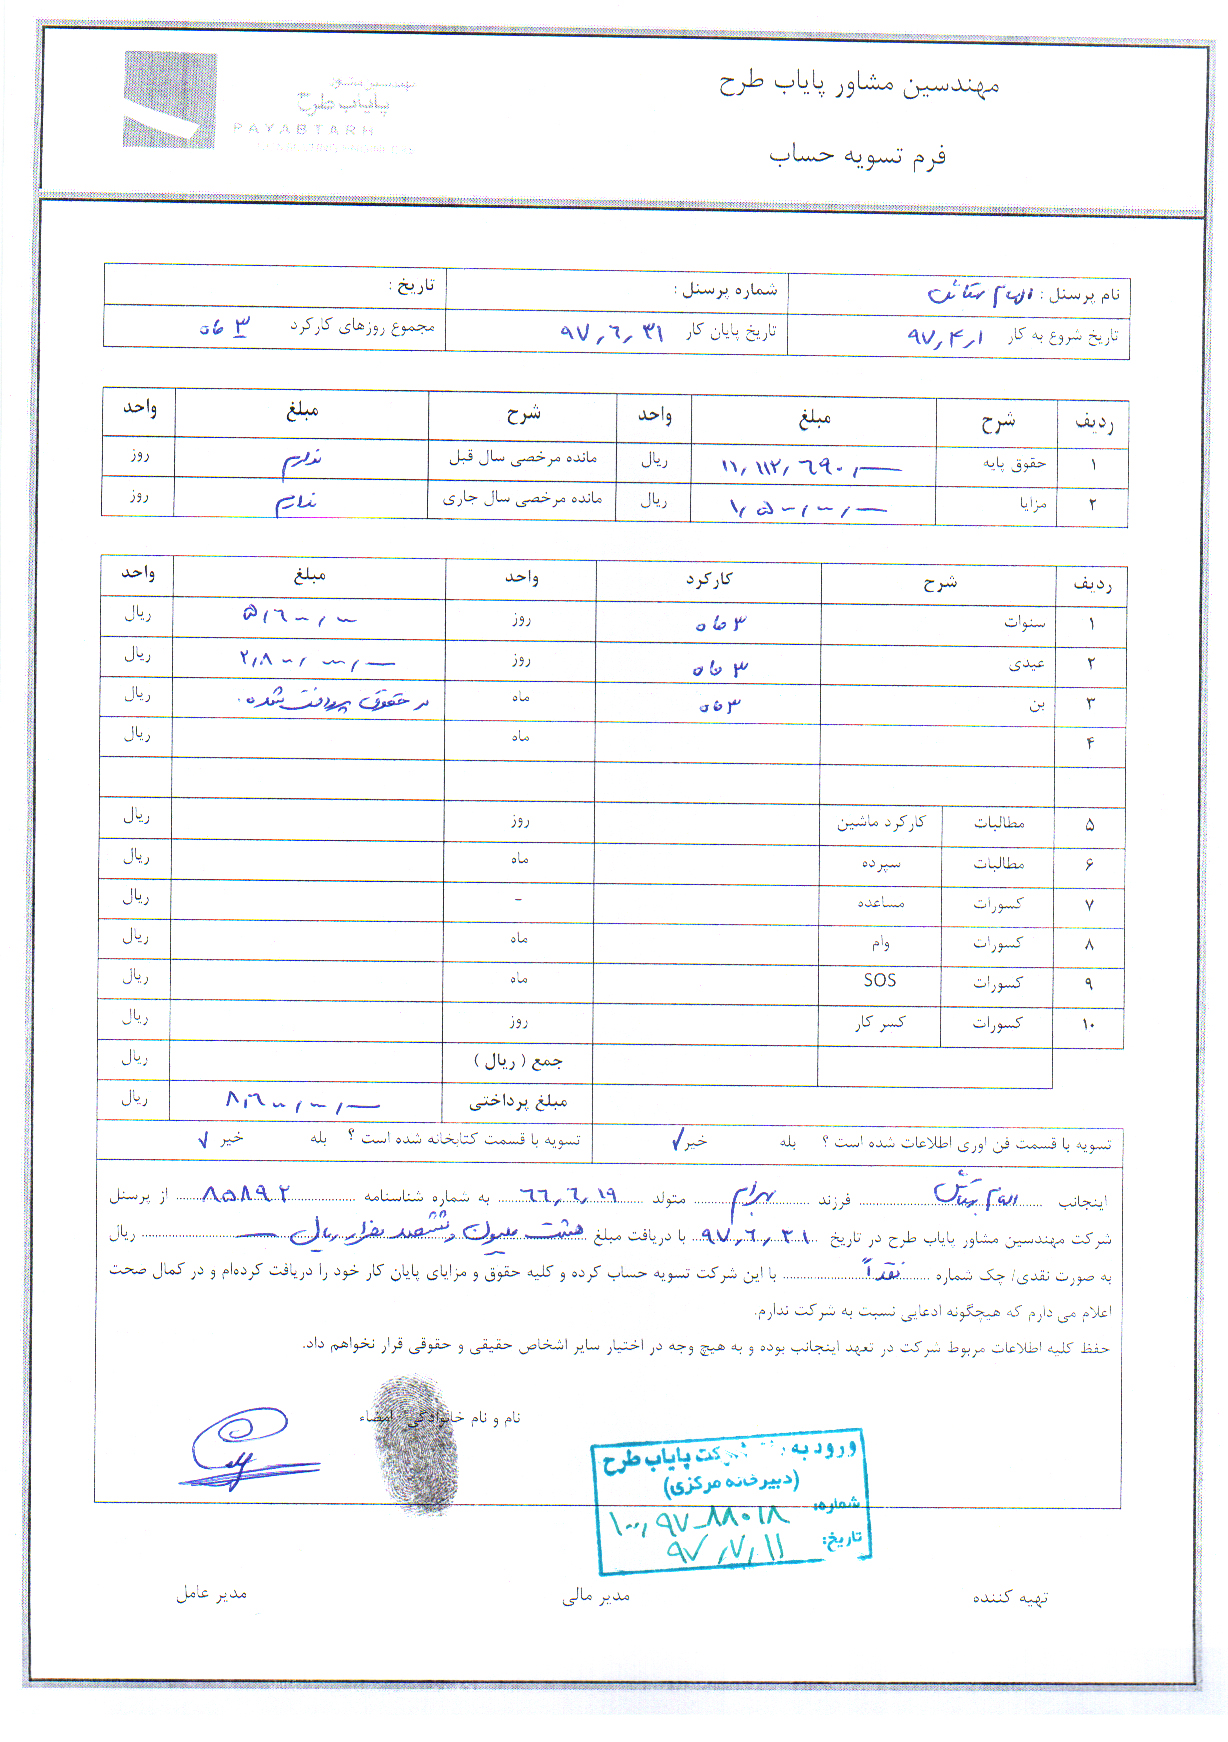 مهندسین مشاور پایاب طرح
فرم تسویه حساب
مهندسین مشاور
پایاب طرح
PAYABTARH
نام پرسنل : الهام
شماره پرسنل :
تاریخ :
تاریخ شروع به کار ۹۷٫۴٫۱
تاریخ پایان کار ۹۷٫۶٫۳۱
مجموع روزهای کارکرد ۳ ماه
ردیف شرح مبلغ واحد شرح مبلغ واحد
۱ حقوق پایه ۱۱٫۱۱۲٫۶۹۰٫— ریال مانده مرخصی سال قبل ندارم روز
۲ مزایا ۱٫۵۰۰٫۰۰۰٫— ریال مانده مرخصی سال جاری ندارم روز
ردیف شرح کارکرد واحد مبلغ واحد
۱ سنوات ۳ ماه روز ریال
۲ عیدی ۳ ماه روز ۲٫۸۰۰٫۰۰۰٫— ریال
۳ بن ۳ ماه ماه در حقوق پرداخت شده . ریال
۴ ماه ریال
۵ مطالبات کارکرد ماشین روز ریال
۶ مطالبات سپرده ماه ریال
۷ کسورات مساعده - ریال
۸ کسورات وام ماه ریال
۹ کسورات SOS ماه ریال
۱۰ کسورات کسر کار روز ریال
جمع ( ریال ) ریال
مبلغ پرداختی ۸٫۶۰۰٫۰۰۰٫— ریال
تسویه با قسمت فن اوری اطلاعات شده است ؟ بله خیر ✓ تسویه با قسمت کتابخانه شده است ؟ بله خیر ✓
اینجانب الهام فرزند بهرام متولد ۶۶٫۶٫۱۹ به شماره شناسنامه ۸۵۸۹۲ از پرسنل
شرکت مهندسین مشاور پایاب طرح در تاریخ ۹۷٫۶٫۳۱ با دریافت مبلغ هشت میلیون و ششصد هزار ریال — ریال
به صورت نقدی/ چک شماره نقداً با این شرکت تسویه حساب کرده و کلیه حقوق و مزایای پایان کار خود را دریافت کرده‌ام و در کمال صحت
اعلام می دارم که هیچگونه ادعایی نسبت به شرکت ندارم.
حفظ کلیه اطلاعات مربوط شرکت در تعهد اینجانب بوده و به هیچ وجه در اختیار سایر اشخاص حقیقی و حقوقی قرار نخواهم داد.
نام و نام خانوادگی/ امضاء
ورود به شرکت پایاب طرح
(دبیرخانه مرکزی)
شماره: ۱۰۰٫۹۷-۸۸۰۱۸
تاریخ: ۹۷٫۷٫۱۱
تهیه کننده
مدیر مالی
مدیر عامل